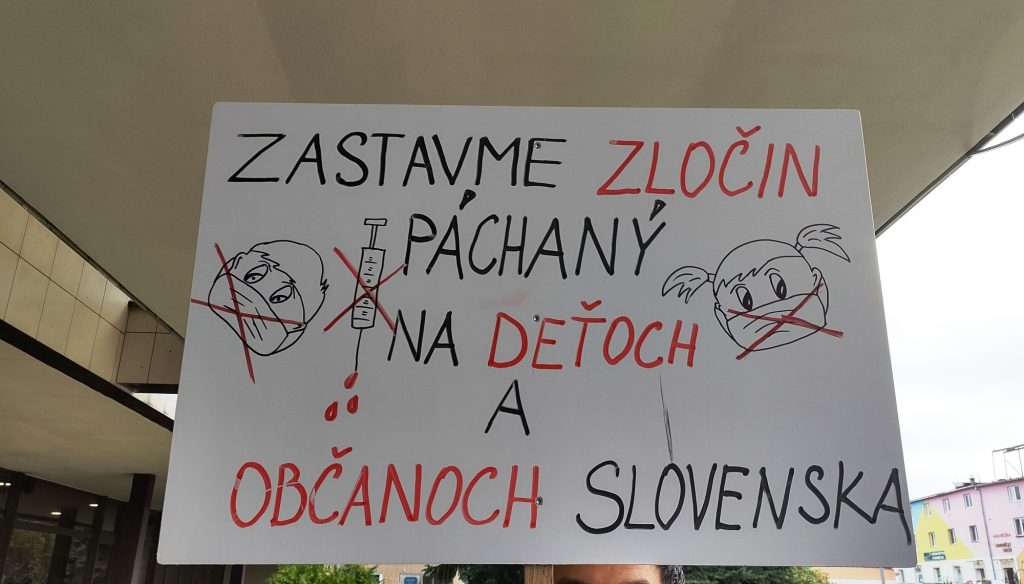 ZASTAVME ZLOČIN
PÁCHANÝ
NA DEŤOCH
A
OBČANOCH SLOVENSKA